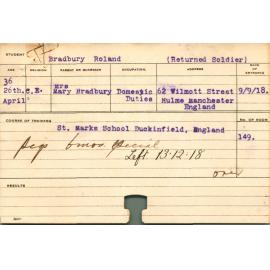 STUDENT
Bradbury Roland (Returned Soldier)
AGE RELIGION PARENT OR GUARDIAN OCCUPATION. ADDRESS
36 Mrs
26th. C.E. Mary Bradbury Domestic 62 Wilmott Street 9/9/18.
April Duties Hulme Manchester
England
COURSE OF TRAINING NO. OF ROOM
St. Marks School Duckinfield, England
149.
6mos. special
Left 13.12.18
RESULTS